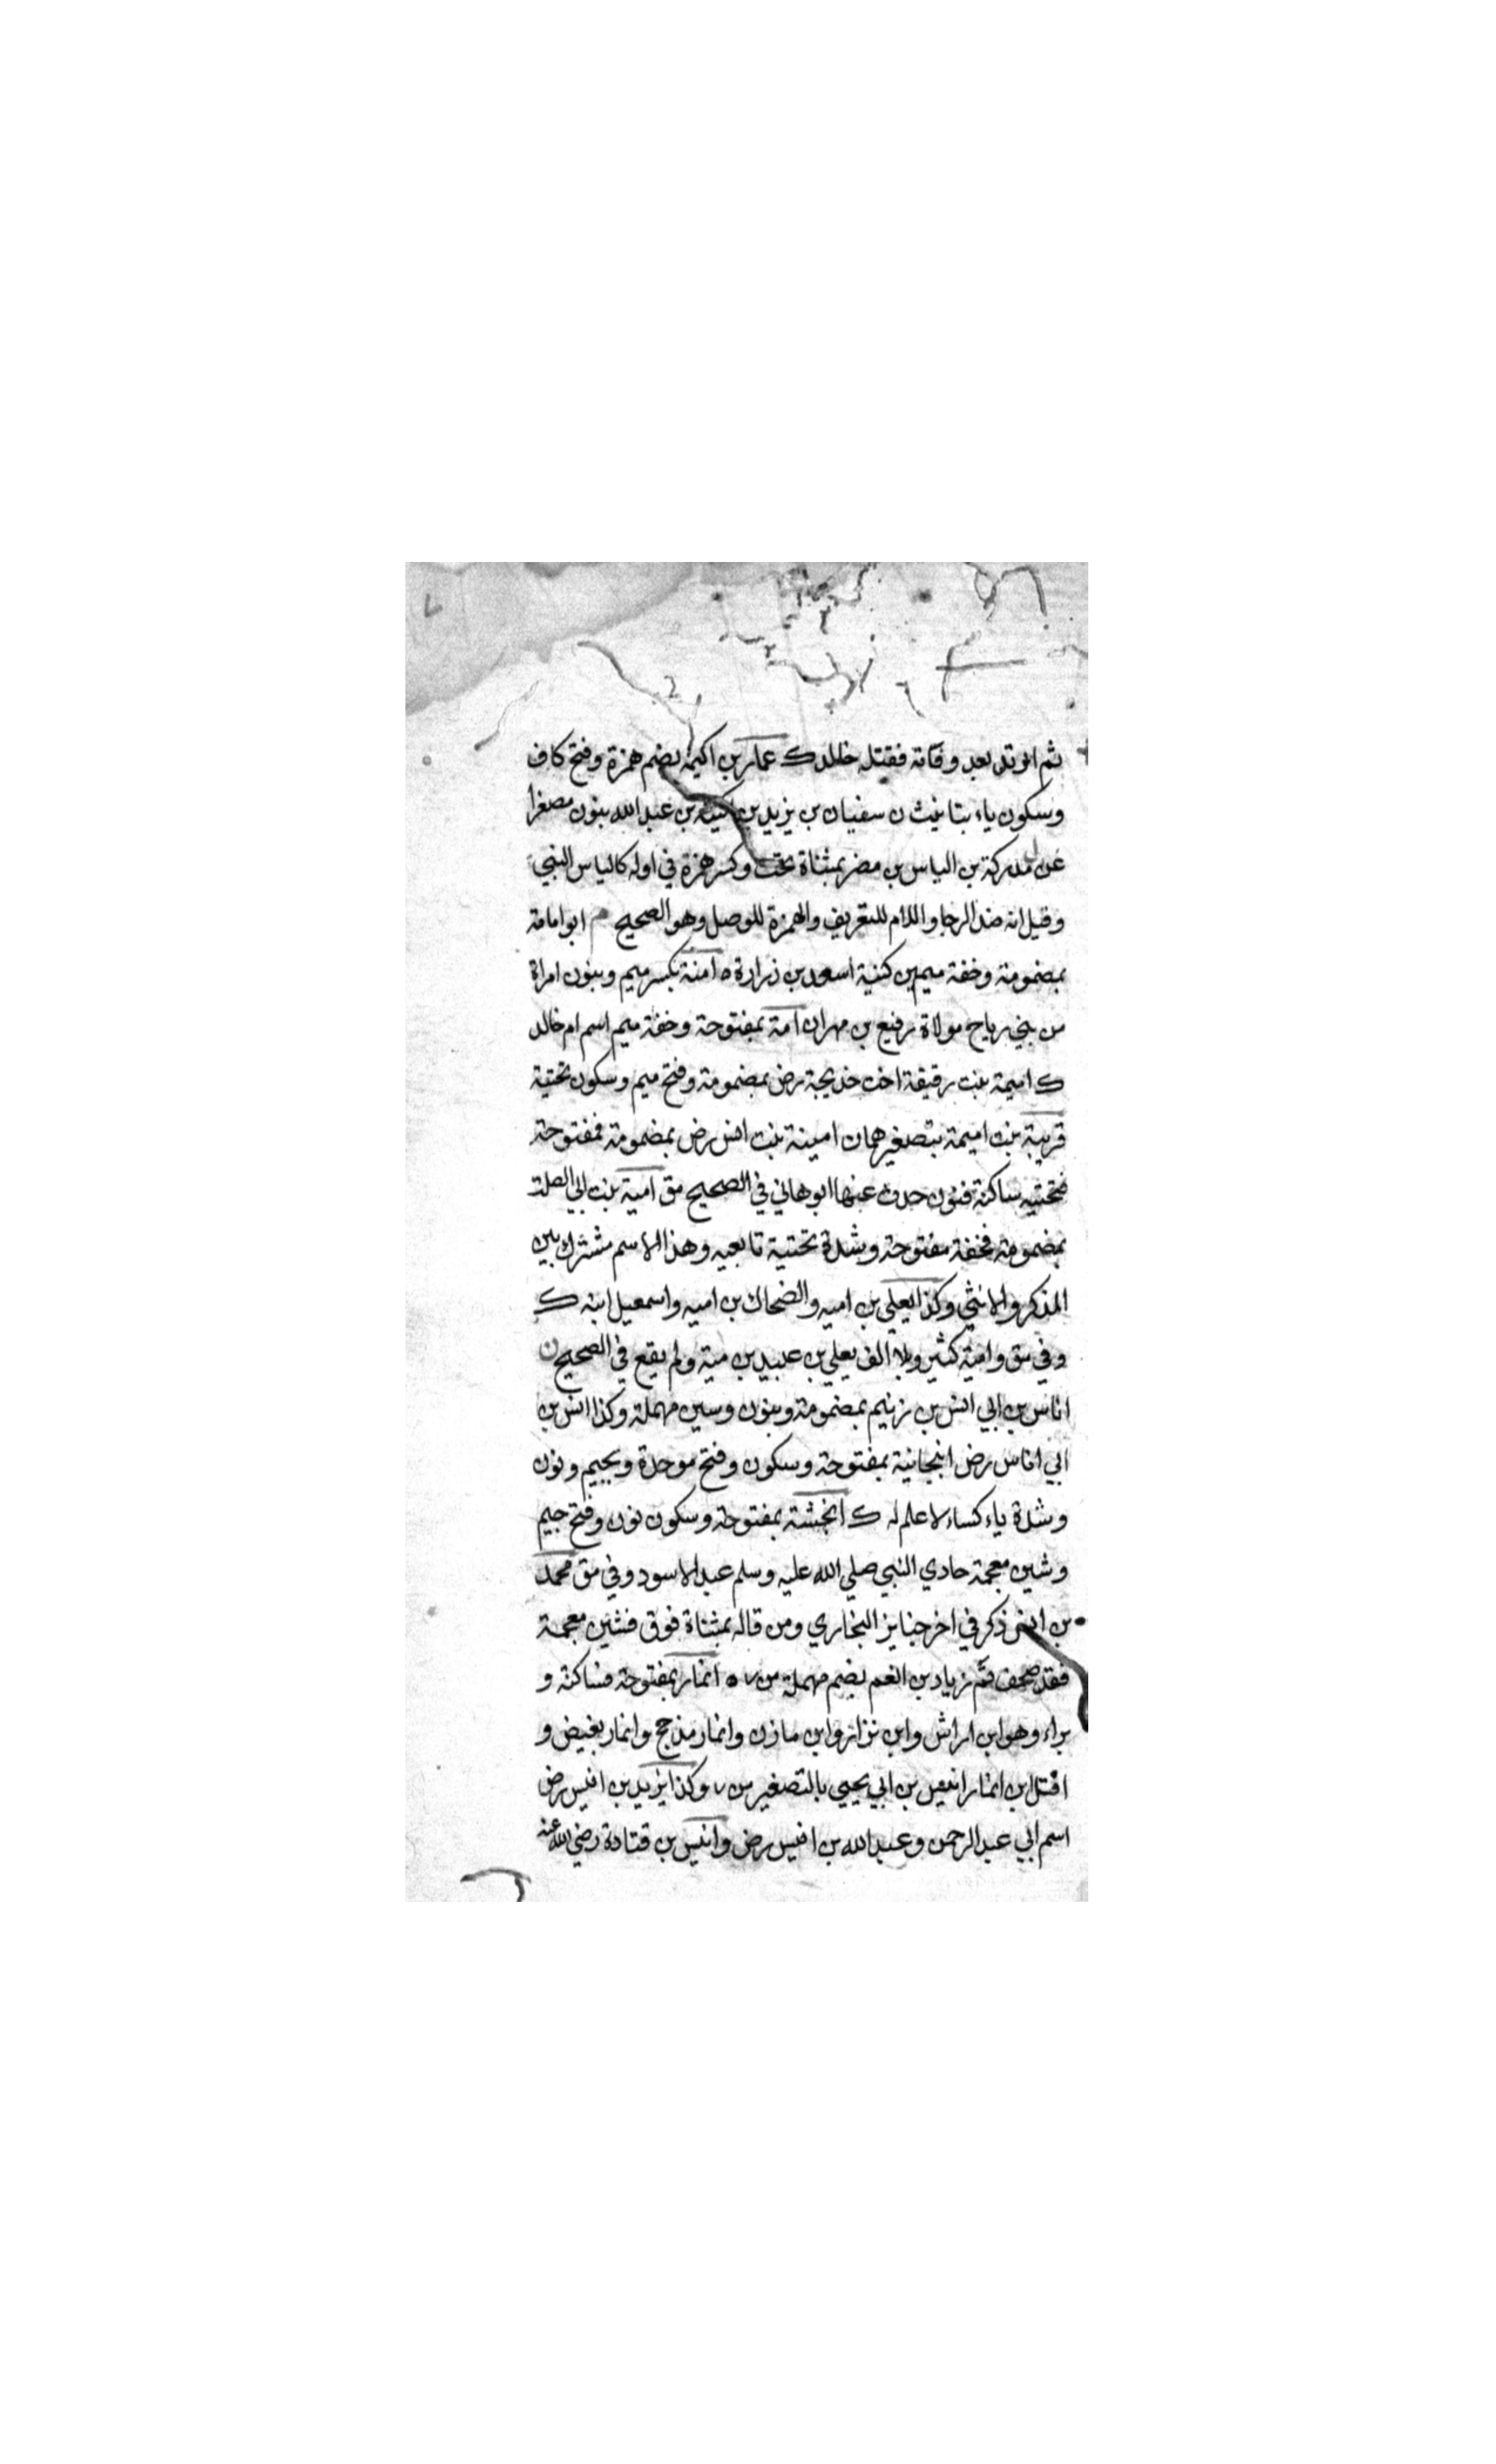 ثم ارتد بعد وفاته فقتله خالد ك عمار بن اكيمة بضم همزة وفتح كاف
وسكون ياء بتانيث ن سفيان بن يزيد بن اكينة بن عبد الله بنون مصغرا
عن مدركة بن الياس بن مضر بمثناة تحت وكسر همزة في اوله كالياس النبي
وقيل انه ضد الرجا واللام للتعريف والهمزة للوصل وهو الصحيح م ابو امامة
بمضمومة وخفة ميمين كنية اسعد بن زرارة ه امنة بكسر ميم وبنون امراة
من بني رياح مولاة رفيع بن مهران امة بمفتوحة وخفة ميم اسم ام خالد
ك اميمة بنت رقيقة اخت خديجة رض بمضمومة وفتح ميم وسكون تحتية
قريبة بنت اميمة بتصغيرهما ن امينة بنت انس رض بمضمومة فمفتوحة
فتحتيه ساكنة فنون حدث عنها ابو هاني في الصحيح مق امية بنت ابي الصلت
بمضمومة فخفة مفتوحة وشدة تحتية تابعيه وهذا الاسم مشترك بين
المذكر والانثي وكذا يعلي بن اميه والضحاك بن اميه واسمعيل ابنه ك
وفي مق وامية كثير وبلا الف يعلي بن عبيد بن مية ولم يقع في الصحيح ن
اناس بن ابي انس بن زنيم بمضمومة وبنون وسين مهملة وكذا انس بن
ابي اناس رض انبجانية بمفتوحة وسكون وفتح موحدة وبجيم ونون
وشدة ياء كساء لا علم له ك انجشة بمفتوحة وسكون نون وفتح جيم
وشين معجمة حادي النبي صلي الله عليه وسلم عبد الاسود وفي مق محمد
بن انس ذكر في اخر جنايز البخاري ومن قاله بمثناة فوق فشين معجمة
فقد صحف قم زياد بن انعم بضم مهملة من ٧ ه انمار بمفتوحة فساكنة و
براء وهو ابن اراش وابن نزار وابن مازن وانمار مذحج وانمار بغيض و
اقتل ابن انمار انيس بن ابي يحيي بالتصغير من ٧ وكذا يزيد بن انيس رض
اسم ابي عبد الرحمن وعبد الله بن انيس رض وانيس بن قتادة رضي الله عنه